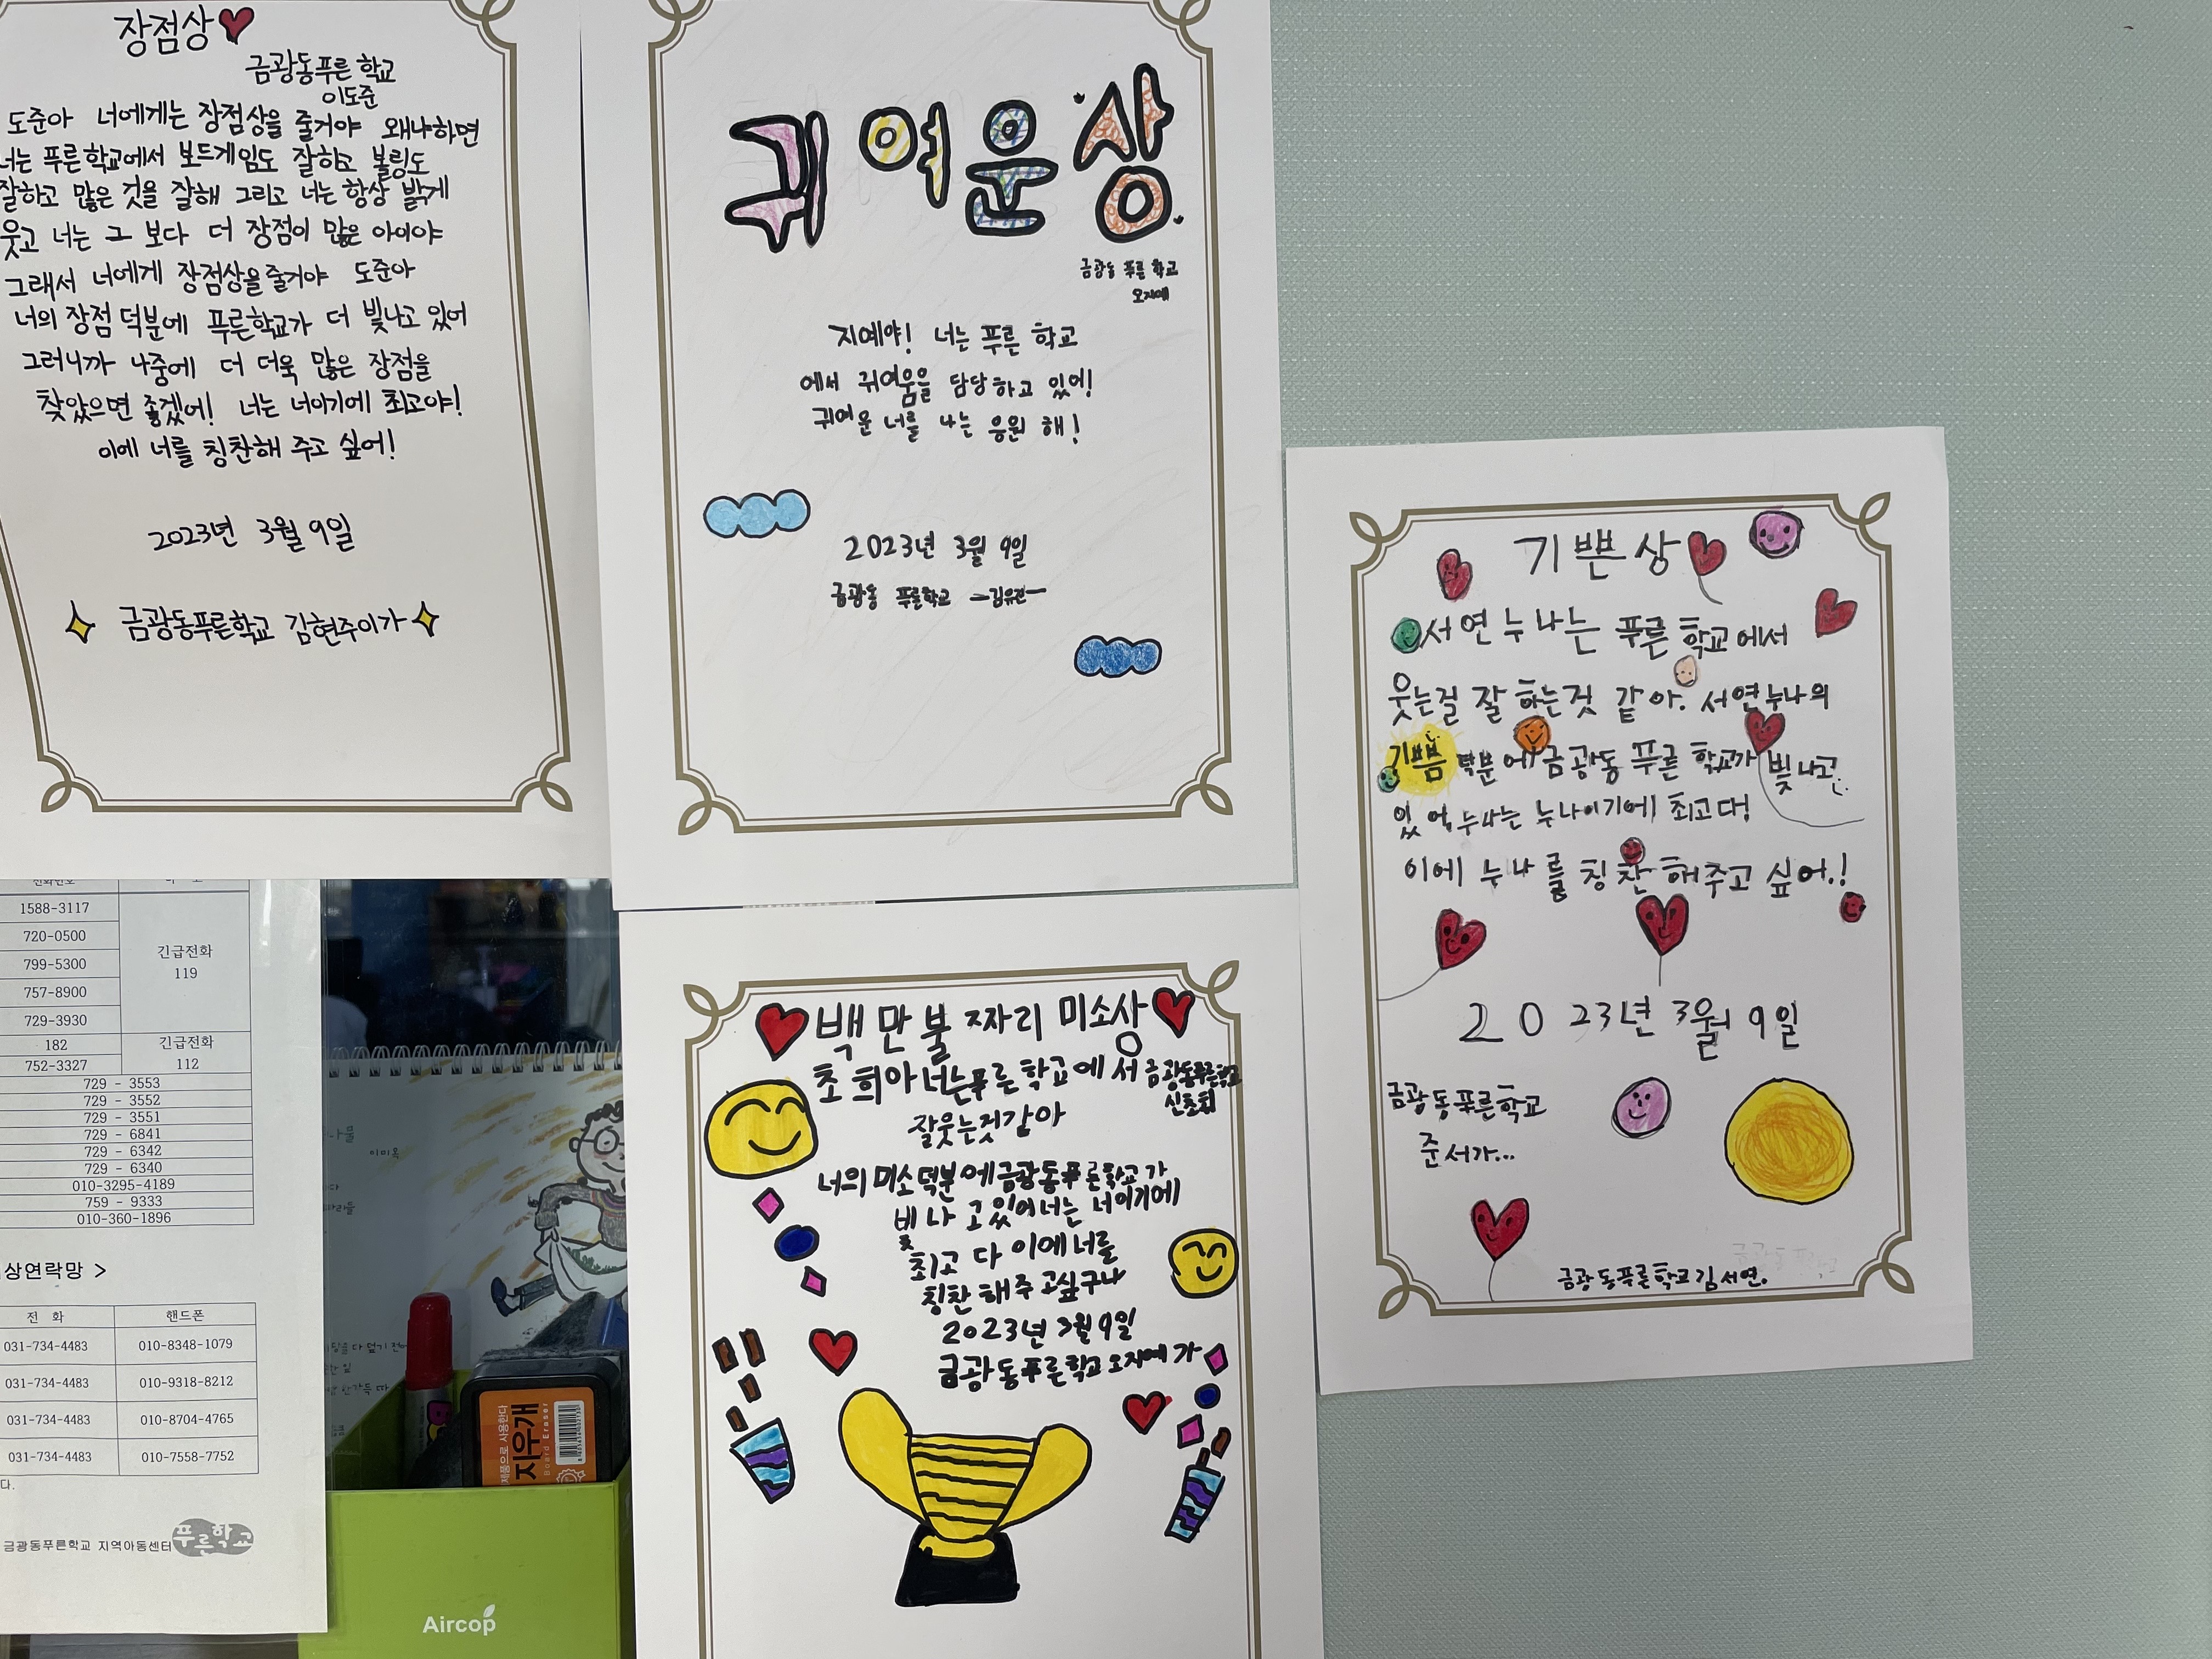 장점상
금광동푸른 학교
이도준
도준아 너에게는 장점상을 줄거야 왜냐하면
너는 푸른학교에서 보드게임도 잘하고 볼링도
잘하고 많은 것을 잘해 그리고 너는 항상 밝게
웃고 너는 그 보다 더 장점이 많은 아이야
그래서 너에게 장점상을줄거야 도준아
너의 장점 덕분에 푸른학교가 더 빛나고 있어
그러니까 나중에 더 더욱 많은 장점을
찾았으면 좋겠어! 너는 너이기에 최고야!
이에 너를 칭찬해 주고 싶어!
2023년 3월 9일
금광동푸른학교 김현주이가
귀여운상
금광동 푸른 학교
오지예
지예야! 너는 푸른 학교
에서 귀여움을 담당하고 있어!
귀여운 너를 나는 응원 해!
2023년 3월 9일
금광동 푸른학교
기쁜상
서연누나는 푸른 학교에서
웃는걸 잘 하는것 같아. 서연누나의
기쁨 덕분에 금광동 푸른 학교가 빛나고
있어 누나는 누나이기에 최고다!
이에 누나를 칭찬해주고 싶어.!
2023년 3월 9일
금광동푸른학교
준서가...
금광동푸른학교김서연.
백만불짜리 미소상
초희아너는푸른학교에서
금광동푸른학교
신초희
잘웃는것같아
너의 미소덕분에금광동푸른학교가
빛나고있어너는 너이기에
최고다 이에너를
칭찬해주고싶구나
2023년 3월 9일
금광동푸른학교오지예가
전화번호
1588-3117
720-0500
799-5300
757-8900
729-3930
긴급전화
119
182
752-3327
긴급전화
112
729 - 3553
729 - 3552
729 - 3551
729 - 6841
729 - 6342
729 - 6340
010-3295-4189
759 - 9333
010-360-1896
상연락망 >
전 화 핸드폰
031-734-4483 010-8348-1079
031-734-4483 010-9318-8212
031-734-4483 010-8704-4765
031-734-4483 010-7558-7752
다.
금광동푸른학교 지역아동센터
푸른학교
이미옥
지우개
Board Eraser
제품으로 사용한다
Aircop